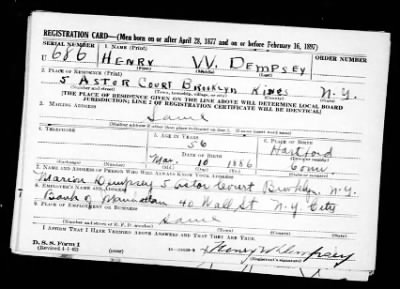 REGISTRATION CARD—(Men born on or after April 28, 1877 and on or before February 16, 1897)
SERIAL NUMBER 1. NAME (Print) ORDER NUMBER
U 686 HENRY W. DEMPSEY
(First) (Middle) (Last)
2. PLACE OF RESIDENCE (Print)
5 ASTOR COURT BROOKLYN KINGS N.Y.
(Number and street) (Town, township, village, or city) (County) (State)
[THE PLACE OF RESIDENCE GIVEN ON THE LINE ABOVE WILL DETERMINE LOCAL BOARD
JURISDICTION; LINE 2 OF REGISTRATION CERTIFICATE WILL BE IDENTICAL]
3. MAILING ADDRESS
Same
[Mailing address if other than place indicated on line 2. If same insert word same]
4. TELEPHONE 5. AGE IN YEARS 6. PLACE OF BIRTH
56 Hartford
DATE OF BIRTH (Town or county)
Mar. 10 1886 Conn
(Exchange) (Number) (Mo.) (Day) (Yr.) (State or country)
7. NAME AND ADDRESS OF PERSON WHO WILL ALWAYS KNOW YOUR ADDRESS
Marion Dempsey 5 Astor Court Brooklyn N.Y.
8. EMPLOYER'S NAME AND ADDRESS
Bank of Manhattan 40 Wall St N.Y. City
9. PLACE OF EMPLOYMENT OR BUSINESS
Same
(Number and street or R. F. D. number) (Town) (County) (State)
I AFFIRM THAT I HAVE VERIFIED ABOVE ANSWERS AND THAT THEY ARE TRUE.
D. S. S. Form 1
(Revised 4-1-42) Henry W Dempsey
(Registrant's signature)